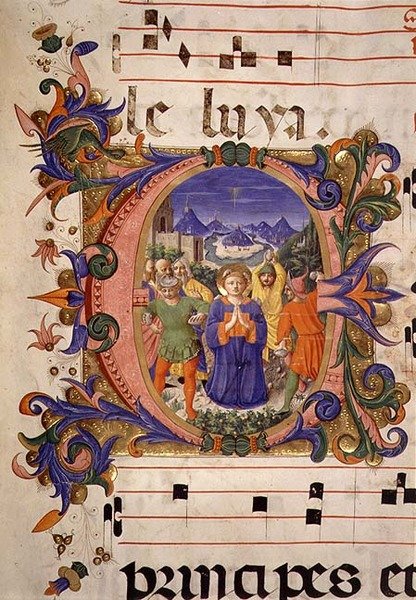 le luya.
principes et